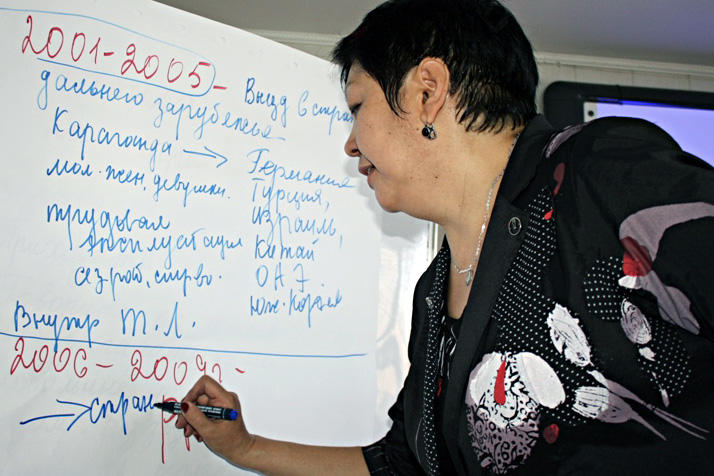 2001-2005- Выезд в стра
дальнего зарубежье
Караганда → Германия
мол. жен, девушки. Турция,
трудовая Израиль,
эксплуатация Китай
ОАЭ
Юж. Корея
Внутр Т.Л.
2006-2009г-
→ стран